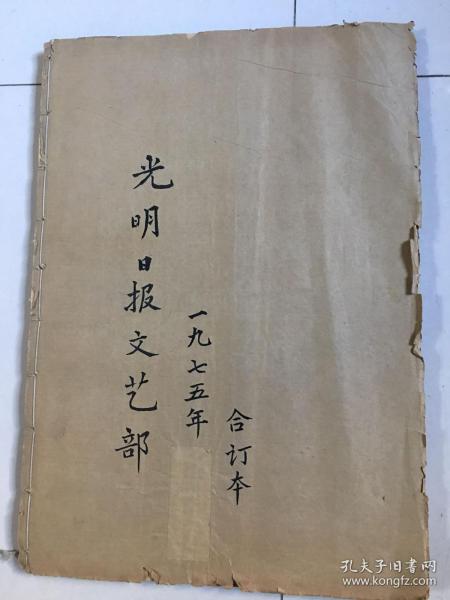 光明日报文艺部
一九七五年
合订本
孔夫子旧书网
www.kongfz.com